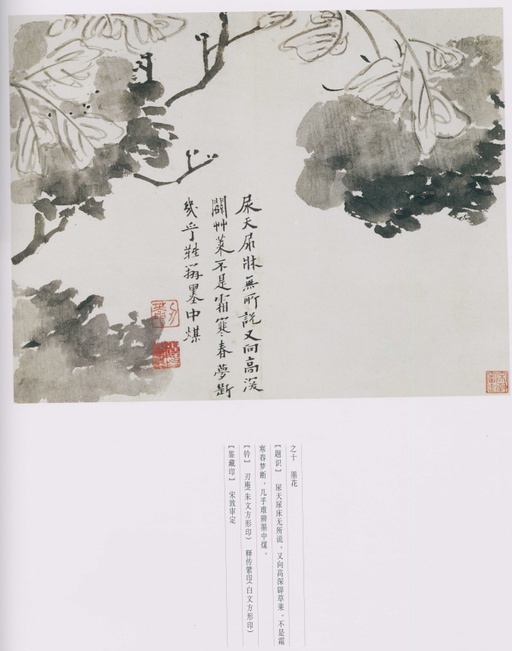 尿天尿牀無所說又向高深
闢艸萊不是霜寒春夢斷
幾乎難辨墨中煤
之十 墨花
【题识】 尿天尿床无所说，又向高深辟草莱。不是霜
寒春梦断，几乎难辨墨中煤。
【钤】 刃庵(朱文方形印) 释传綮印(白文方形印)
【鉴藏印】 宋致审定